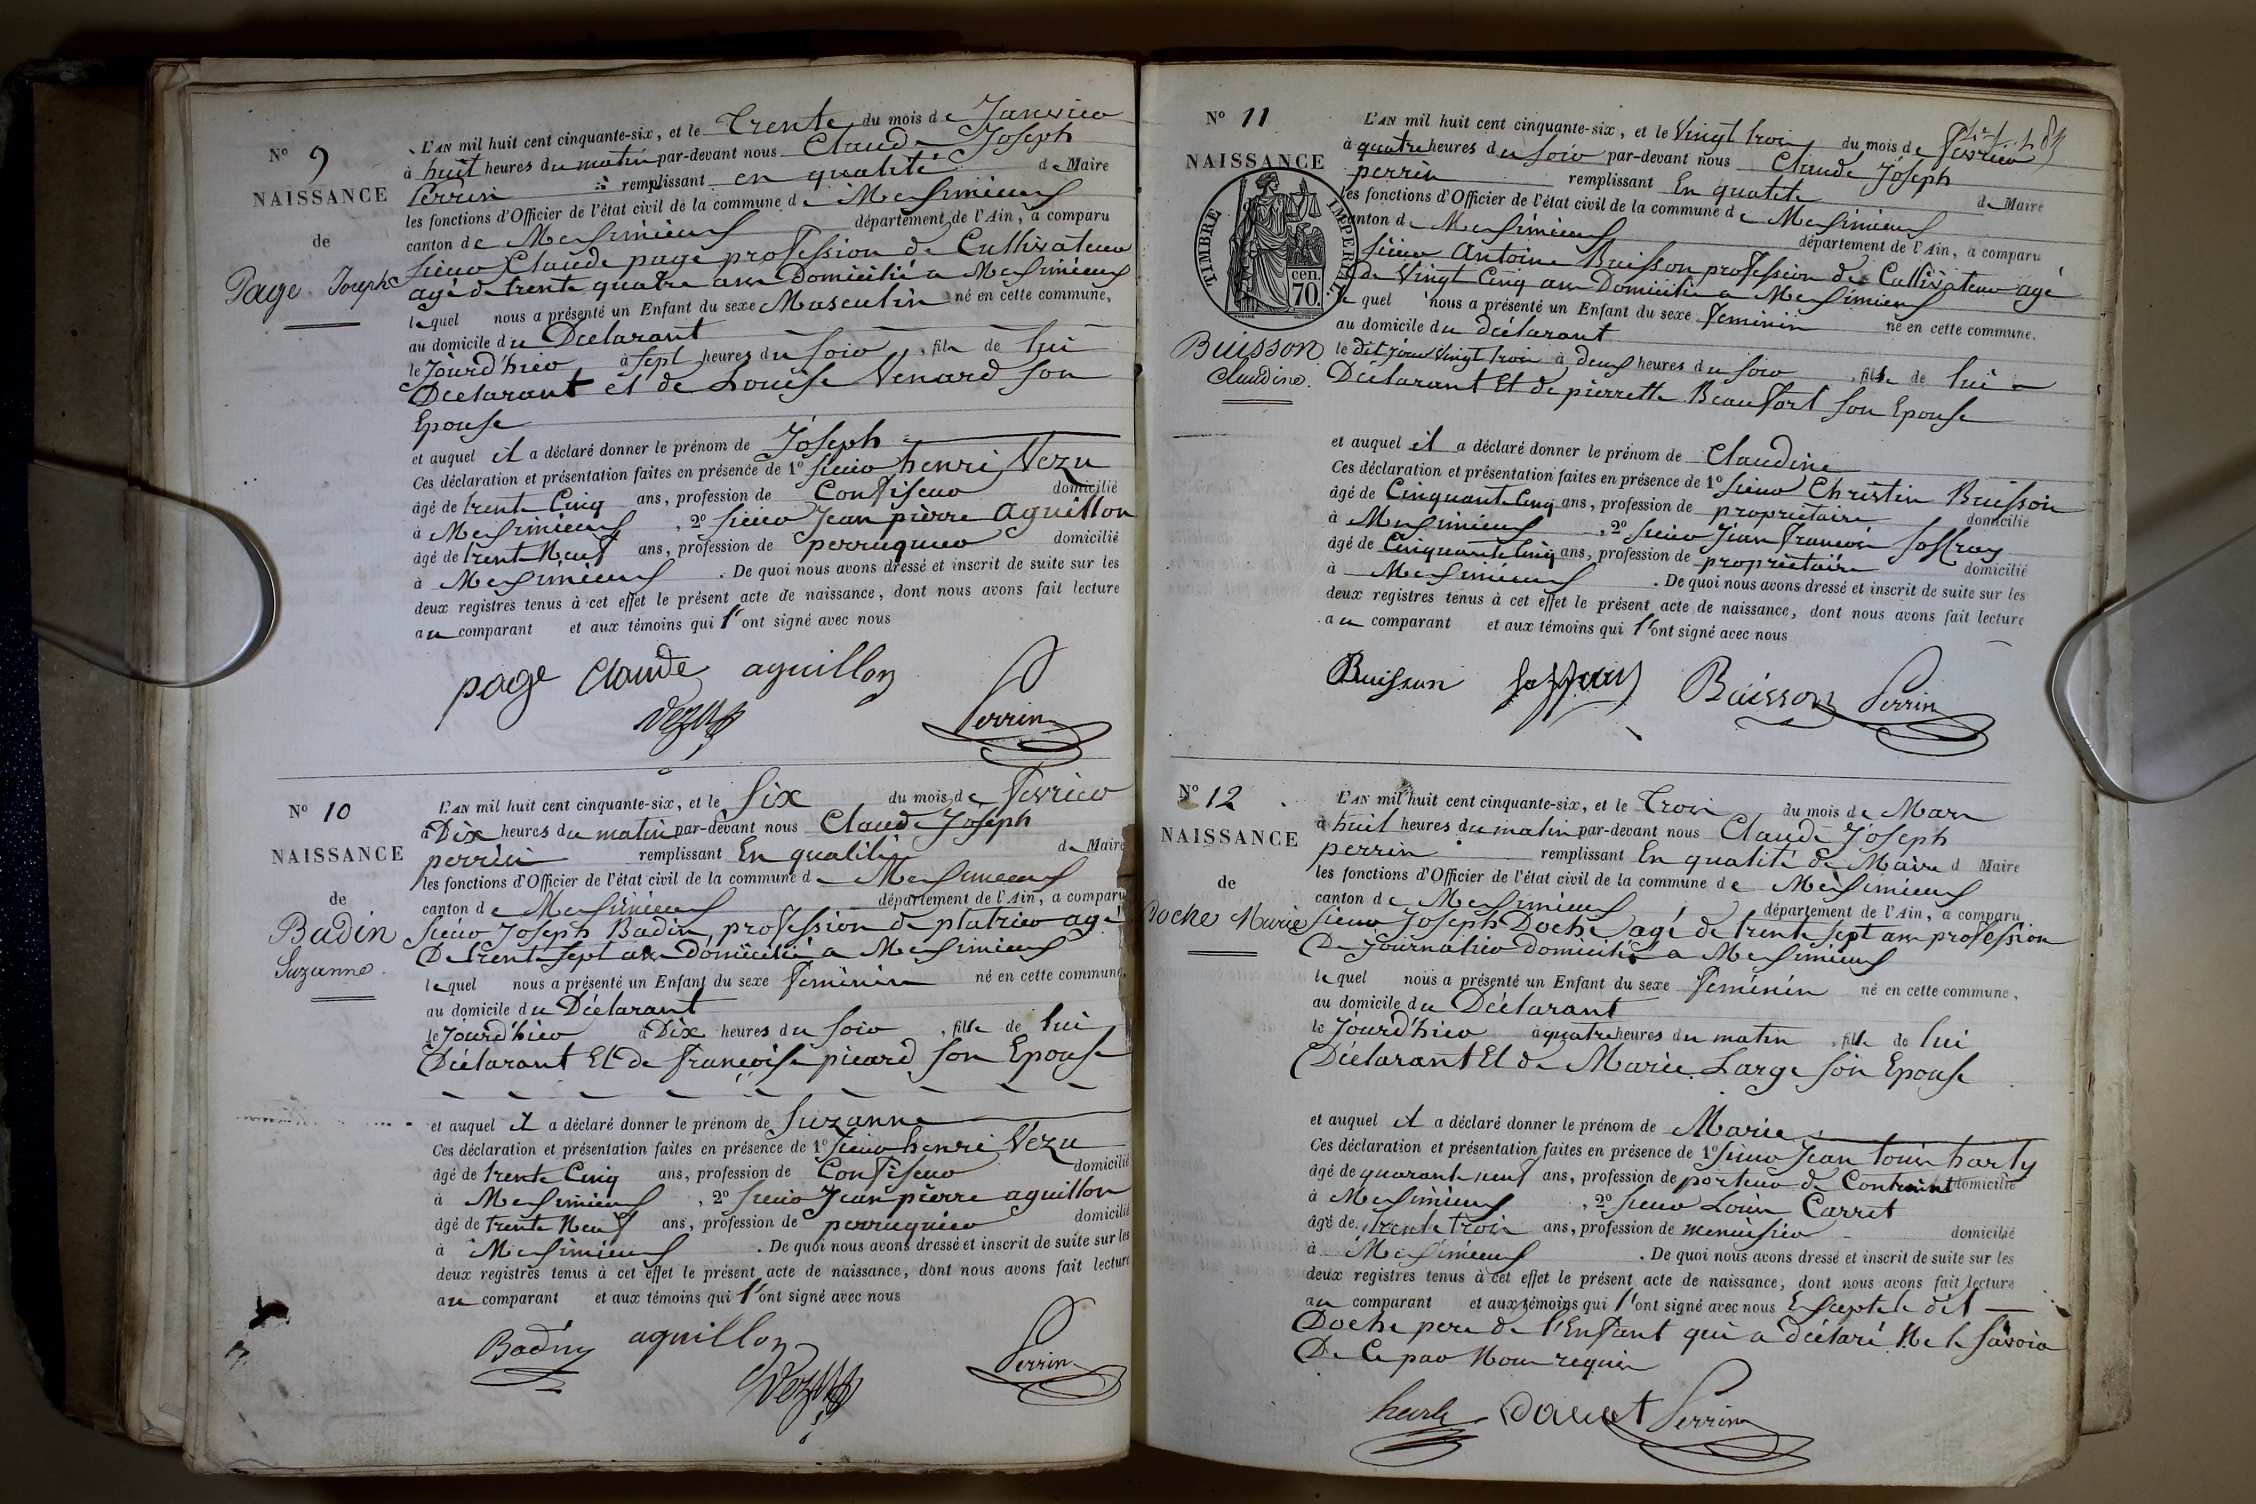 N° 9
NAISSANCE
de
Page Joseph
L'AN mil huit cent cinquante-six, et le Trente du mois de Janvier
à huit heures du matin par-devant nous Claude Joseph
Perrin remplissant en qualité de Maire
les fonctions d'Officier de l'état civil de la commune de Meximieux
canton de Meximieux département de l'Ain, a comparu
sieur Claude page profession de Cultivateur
agé de trente quatre ans Domicilié a Meximieux
lequel nous a présenté un Enfant du sexe Masculin né en cette commune,
au domicile du Déclarant
le Jourd'hier à sept heures du soir, fils de lui
Déclarant et de Louise Venard son
Epouse
et auquel il a déclaré donner le prénom de Joseph
Ces déclaration et présentation faites en présence de 1° sieur henri Vezu
âgé de trente Cinq ans, profession de Confiseur domicilié
à Meximieux, 2° sieur Jean pierre aguillon
âgé de trente Neuf ans, profession de perruquier domicilié
à Meximieux. De quoi nous avons dressé et inscrit de suite sur les
deux registres tenus à cet effet le présent acte de naissance, dont nous avons fait lecture
au comparant et aux témoins qui l'ont signé avec nous
page Claude aguillon
Vezu Perrin
N° 10
NAISSANCE
de
Badin
Suzanne.
L'AN mil huit cent cinquante-six, et le Six du mois de Fevrier
à Dix heures du matin par-devant nous Claude Joseph
perrin remplissant En qualité de Maire
les fonctions d'Officier de l'état civil de la commune de Meximieux
canton de Meximieux département de l'Ain, a comparu
sieur Joseph Badin, profession de platrier agé
De trente sept ans Domicilié a Meximieux
lequel nous a présenté un Enfant du sexe feminin né en cette commune,
au domicile du Déclarant
le Jourd'hier à Dix heures du soir, fille de lui
Déclarant Et de françoise picard son Epouse
et auquel il a déclaré donner le prénom de Suzanne
Ces déclaration et présentation faites en présence de 1° sieur henri Vezu
âgé de trente Cinq ans, profession de Confiseur domicilié
à Meximieux, 2° sieur Jean pierre aguillon
âgé de trente Neuf ans, profession de perruquier domicilié
à Meximieux. De quoi nous avons dressé et inscrit de suite sur les
deux registres tenus à cet effet le présent acte de naissance, dont nous avons fait lecture
au comparant et aux témoins qui l'ont signé avec nous
Badin aguillon
Vezu Perrin
N° 11
NAISSANCE
TIMBRE IMPERIAL
cen.
70.
Buisson
Claudine.
L'AN mil huit cent cinquante-six, et le Vingt trois du mois de fevrier
à quatre heures du soir par-devant nous Claude Joseph
perrin remplissant En qualité de Maire
les fonctions d'Officier de l'état civil de la commune de Meximieux
canton de Meximieux département de l'Ain, a comparu
sieur Antoine Buisson profession de Cultivateur agé
De Vingt Cinq ans Domicilié a Meximieux
lequel nous a présenté un Enfant du sexe feminin né en cette commune.
au domicile du déclarant
le dit jour Vingt trois à deux heures du soir, fille de lui
Déclarant Et de pierrette Beaufort son Epouse
et auquel il a déclaré donner le prénom de Claudine
Ces déclaration et présentation faites en présence de 1° sieur Christin Buisson
âgé de Cinquante Cinq ans, profession de propriétaire domicilié
à Meximieux, 2° sieur Jean francois Joffray
âgé de Cinquante Cinq ans, profession de propriétaire domicilié
à Meximieux. De quoi nous avons dressé et inscrit de suite sur les
deux registres tenus à cet effet le présent acte de naissance, dont nous avons fait lecture
au comparant et aux témoins qui l'ont signé avec nous
Buisson Buisson Perrin
N° 12
NAISSANCE
de
Doche Marie
L'AN mil huit cent cinquante-six, et le Trois du mois de Mars
à huit heures du matin par-devant nous Claude Joseph
perrin remplissant En qualité de Maire d Maire
les fonctions d'Officier de l'état civil de la commune de Meximieux
canton de Meximieux, département de l'Ain, a comparu
sieur Joseph Doche agé de trente sept ans profession
De Journalier domicilié a Meximieux
lequel nous a présenté un Enfant du sexe féminin né en cette commune,
au domicile du Déclarant
le Jourd'hier à quatre heures du matin, fille de lui
Déclarant Et de Marie Large son Epouse
et auquel il a déclaré donner le prénom de Marie
Ces déclaration et présentation faites en présence de 1° sieur Jean louis harly
âgé de quarante neuf ans, profession de porteur de Contraint domicilié
à Meximieux, 2° sieur Louis Carret
âgé de trente trois ans, profession de menuisier domicilié
à Meximieux. De quoi nous avons dressé et inscrit de suite sur les
deux registres tenus à cet effet le présent acte de naissance, dont nous avons fait lecture
au comparant et aux témoins qui l'ont signé avec nous Excepté le dit
Doche pere de l'Enfant qui a déclaré Ne le savoir
De Ce par Nous requis
Perrin